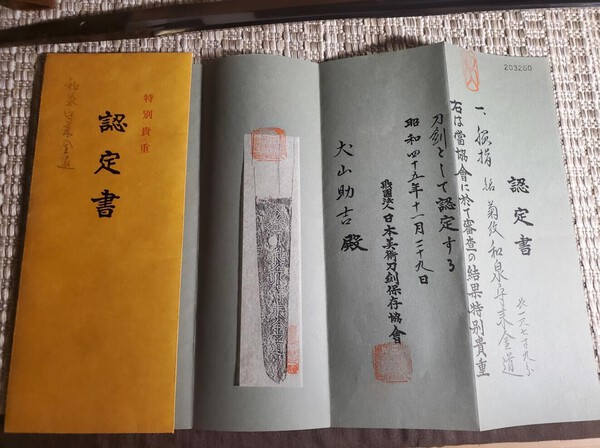 特別貴重
認定書
203260
認定書
一、脇指 銘 菊紋和泉守来金道
長一尺七寸九分
右は當協會に於て審査の結果特別貴重
刀剣として認定する
昭和四十五年十一月二十九日
財團法人日本美術刀剣保存協會
犬山助吉殿